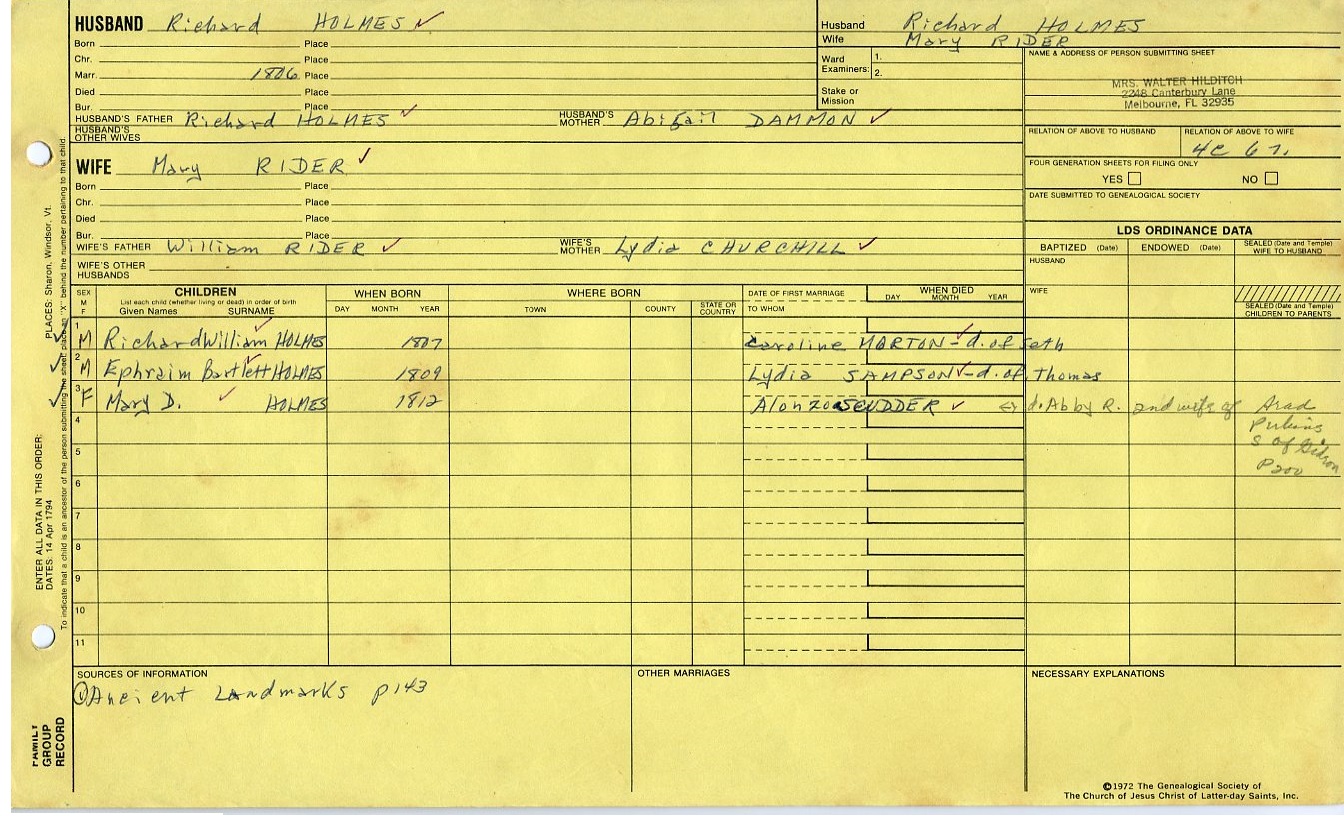 HUSBAND Richard HOLMES ✓
Born Place
Chr. Place
Marr. 1806 Place
Died Place
Bur. Place
HUSBAND'S FATHER Richard HOLMES ✓ HUSBAND'S MOTHER Abigail DAMMON ✓
HUSBAND'S OTHER WIVES
WIFE Mary RIDER ✓
Born Place
Chr. Place
Died Place
Bur. Place
WIFE'S FATHER William RIDER ✓ WIFE'S MOTHER Lydia CHURCHILL ✓
WIFE'S OTHER HUSBANDS
Husband Richard HOLMES
Wife Mary RIDER
Ward Examiners: 1.
2.
Stake or Mission
NAME & ADDRESS OF PERSON SUBMITTING SHEET
MRS. WALTER HILDITCH
2248 Canterbury Lane
Melbourne, FL 32935
RELATION OF ABOVE TO HUSBAND RELATION OF ABOVE TO WIFE
4C 6
FOUR GENERATION SHEETS FOR FILING ONLY
YES NO
DATE SUBMITTED TO GENEALOGICAL SOCIETY
LDS ORDINANCE DATA
BAPTIZED (Date) ENDOWED (Date) SEALED (Date and Temple) WIFE TO HUSBAND
HUSBAND
WIFE
SEALED (Date and Temple) CHILDREN TO PARENTS
SEX M F
CHILDREN
List each child (whether living or dead) in order of birth
Given Names SURNAME
WHEN BORN
DAY MONTH YEAR
WHERE BORN
TOWN COUNTY STATE OR COUNTRY
DATE OF FIRST MARRIAGE
TO WHOM
WHEN DIED
DAY MONTH YEAR
1 M Richard William HOLMES 1807 Caroline MORTON - d. of Seth
2 M Ephraim Bartlett HOLMES 1809 Lydia SAMPSON - d. of Thomas
3 F Mary D. HOLMES 1812 Alonzo SCUDDER ✓ d. Abby R. and wife of Arad
Perkins
S of Gideon
P200
4
5
6
7
8
9
10
11
SOURCES OF INFORMATION
① Ancient Landmarks p143
OTHER MARRIAGES
NECESSARY EXPLANATIONS
©1972 The Genealogical Society of
The Church of Jesus Christ of Latter-day Saints, Inc.
FAMILY GROUP RECORD
ENTER ALL DATA IN THIS ORDER:
DATES: 14 Apr 1794
PLACES: Sharon, Windsor, Vt.
To indicate that a child is an ancestor of the person submitting the sheet, place an "X" behind the number pertaining to that child.